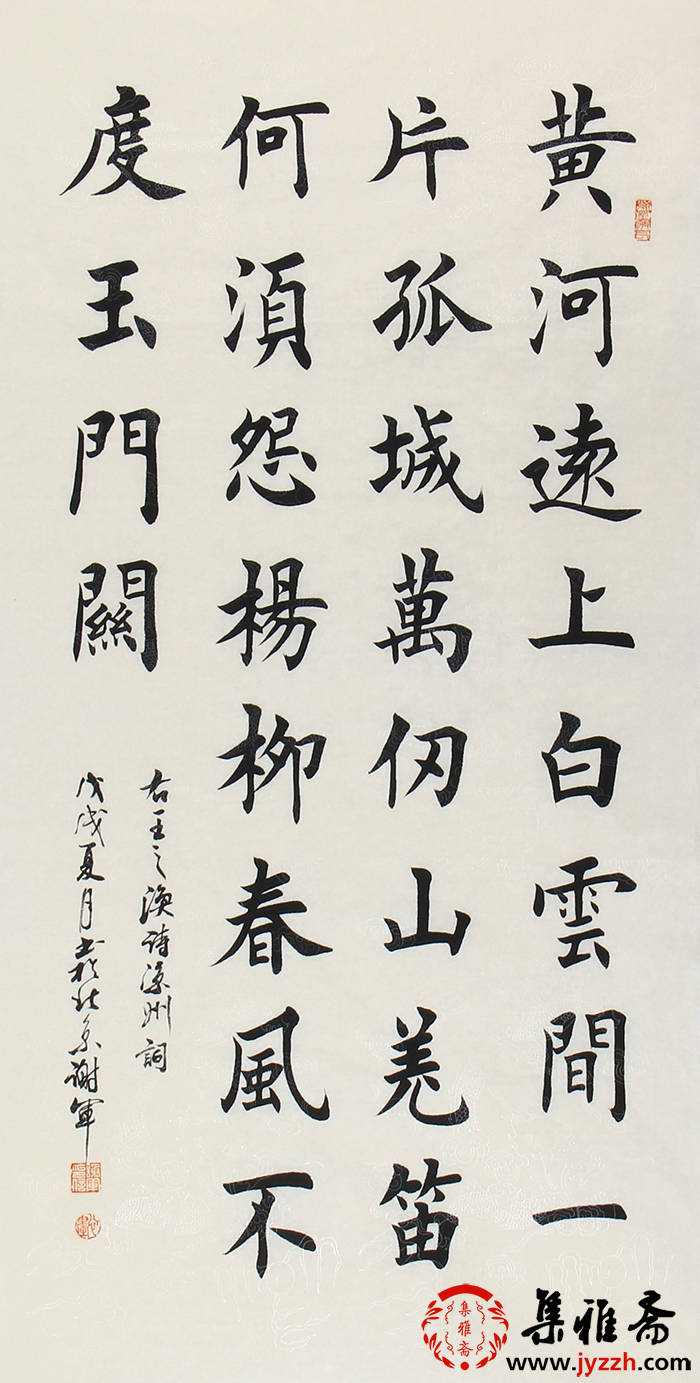 黄河遠上白雲間一
片孤城萬仞山羌笛
何須怨楊柳春風不
度玉門關
右王之渙詩涼州詞
戊戌夏月書於北京謝軍
集雅斋
集雅斋
www.jyzzh.com